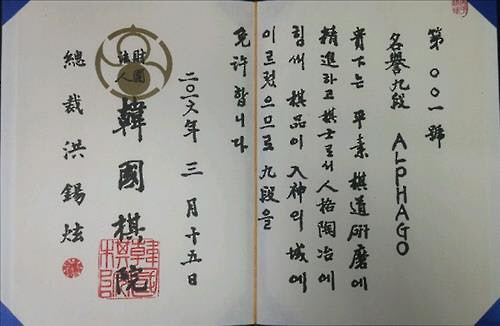 第 〇〇一 號
名譽九段 ALPHAGO
貴下는 平素 棋道硏磨에
精進하고 棋士로서 人格陶冶에
힘써 棋品이 入神의 域에
이르렀으므로 九段을
免許합니다
二〇一六年 三月十五日
財團
法人
韓國棋院
總裁 洪錫炫